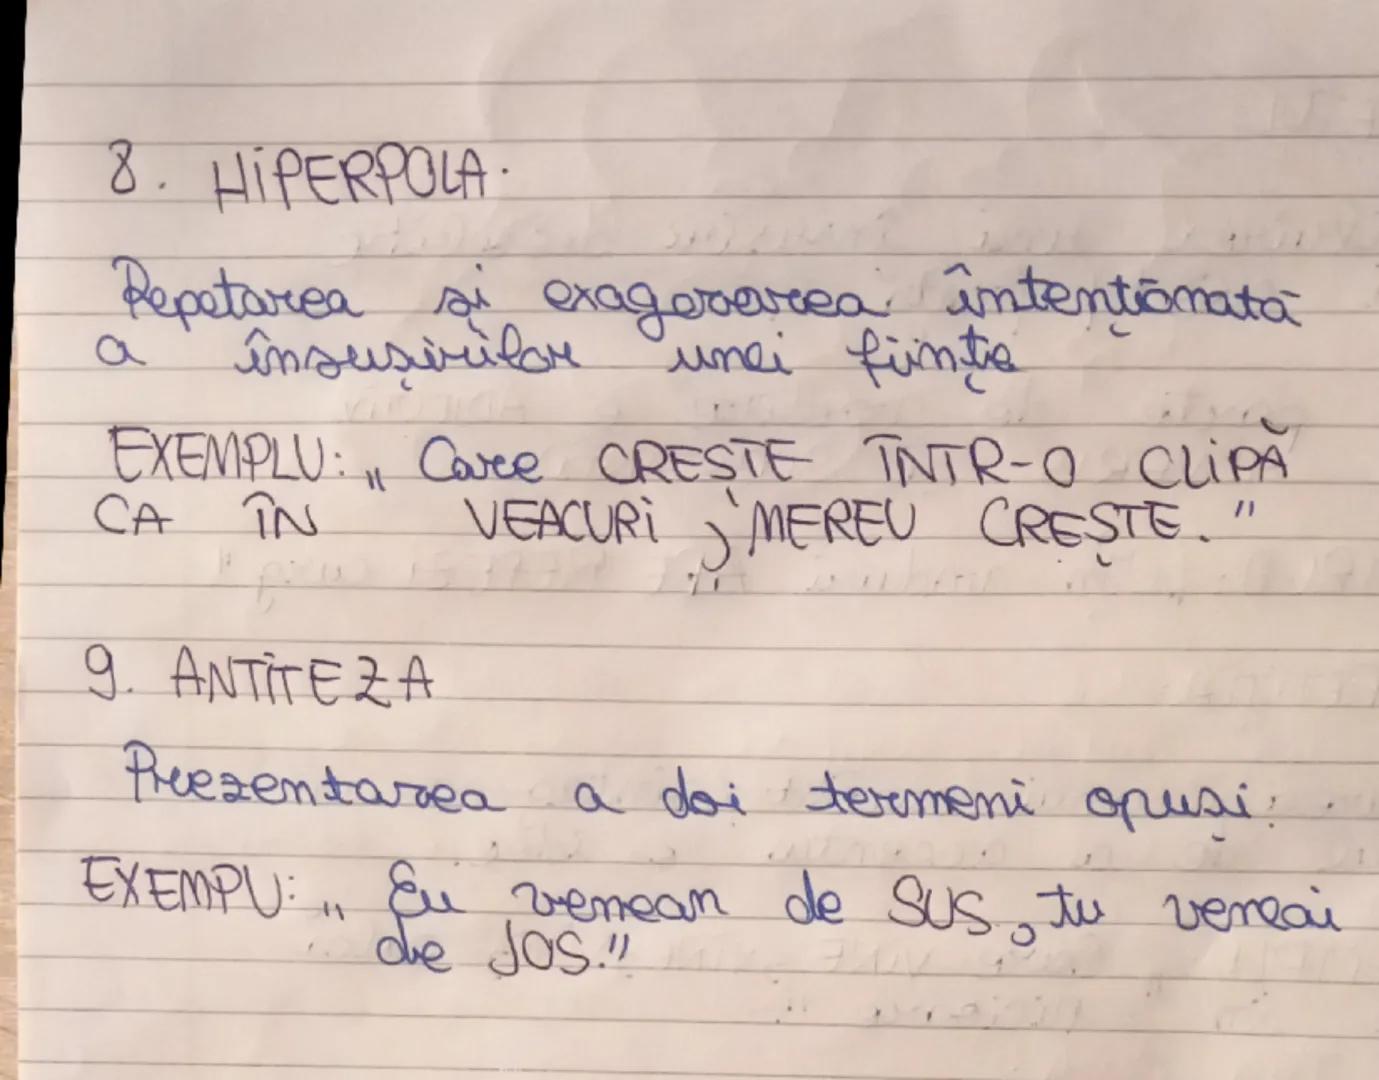 8. HiPERPOLA.
Repetarea și exagerarea întenționată
a însușirilor unei ființe
EXEMPLU: „ Care CREȘTE ÎNTR-O CLiPĂ
CA ÎN VEACURi, MEREU CREȘTE."
9. ANTiTEZA
Prezentarea a doi termeni opuși.
EXEMPU: „ Eu veneam de SUS, tu veneai
de JOS."